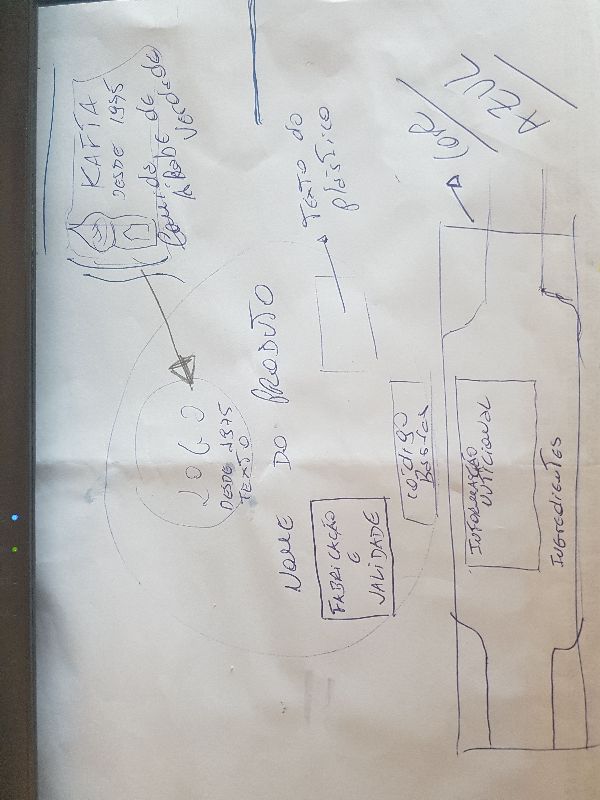 KAFTA
DESDE 1975
Comida
Árabe de
Verdade
LOGO
DESDE 1975
TEXTO
NOME DO PRODUTO
TEXTO do
plástico
FABRICAÇÃO
E
VALIDADE
CODIGO
COR
AZUL
INFORMAÇÃO
NUTICIONAL
INGREDIENTES